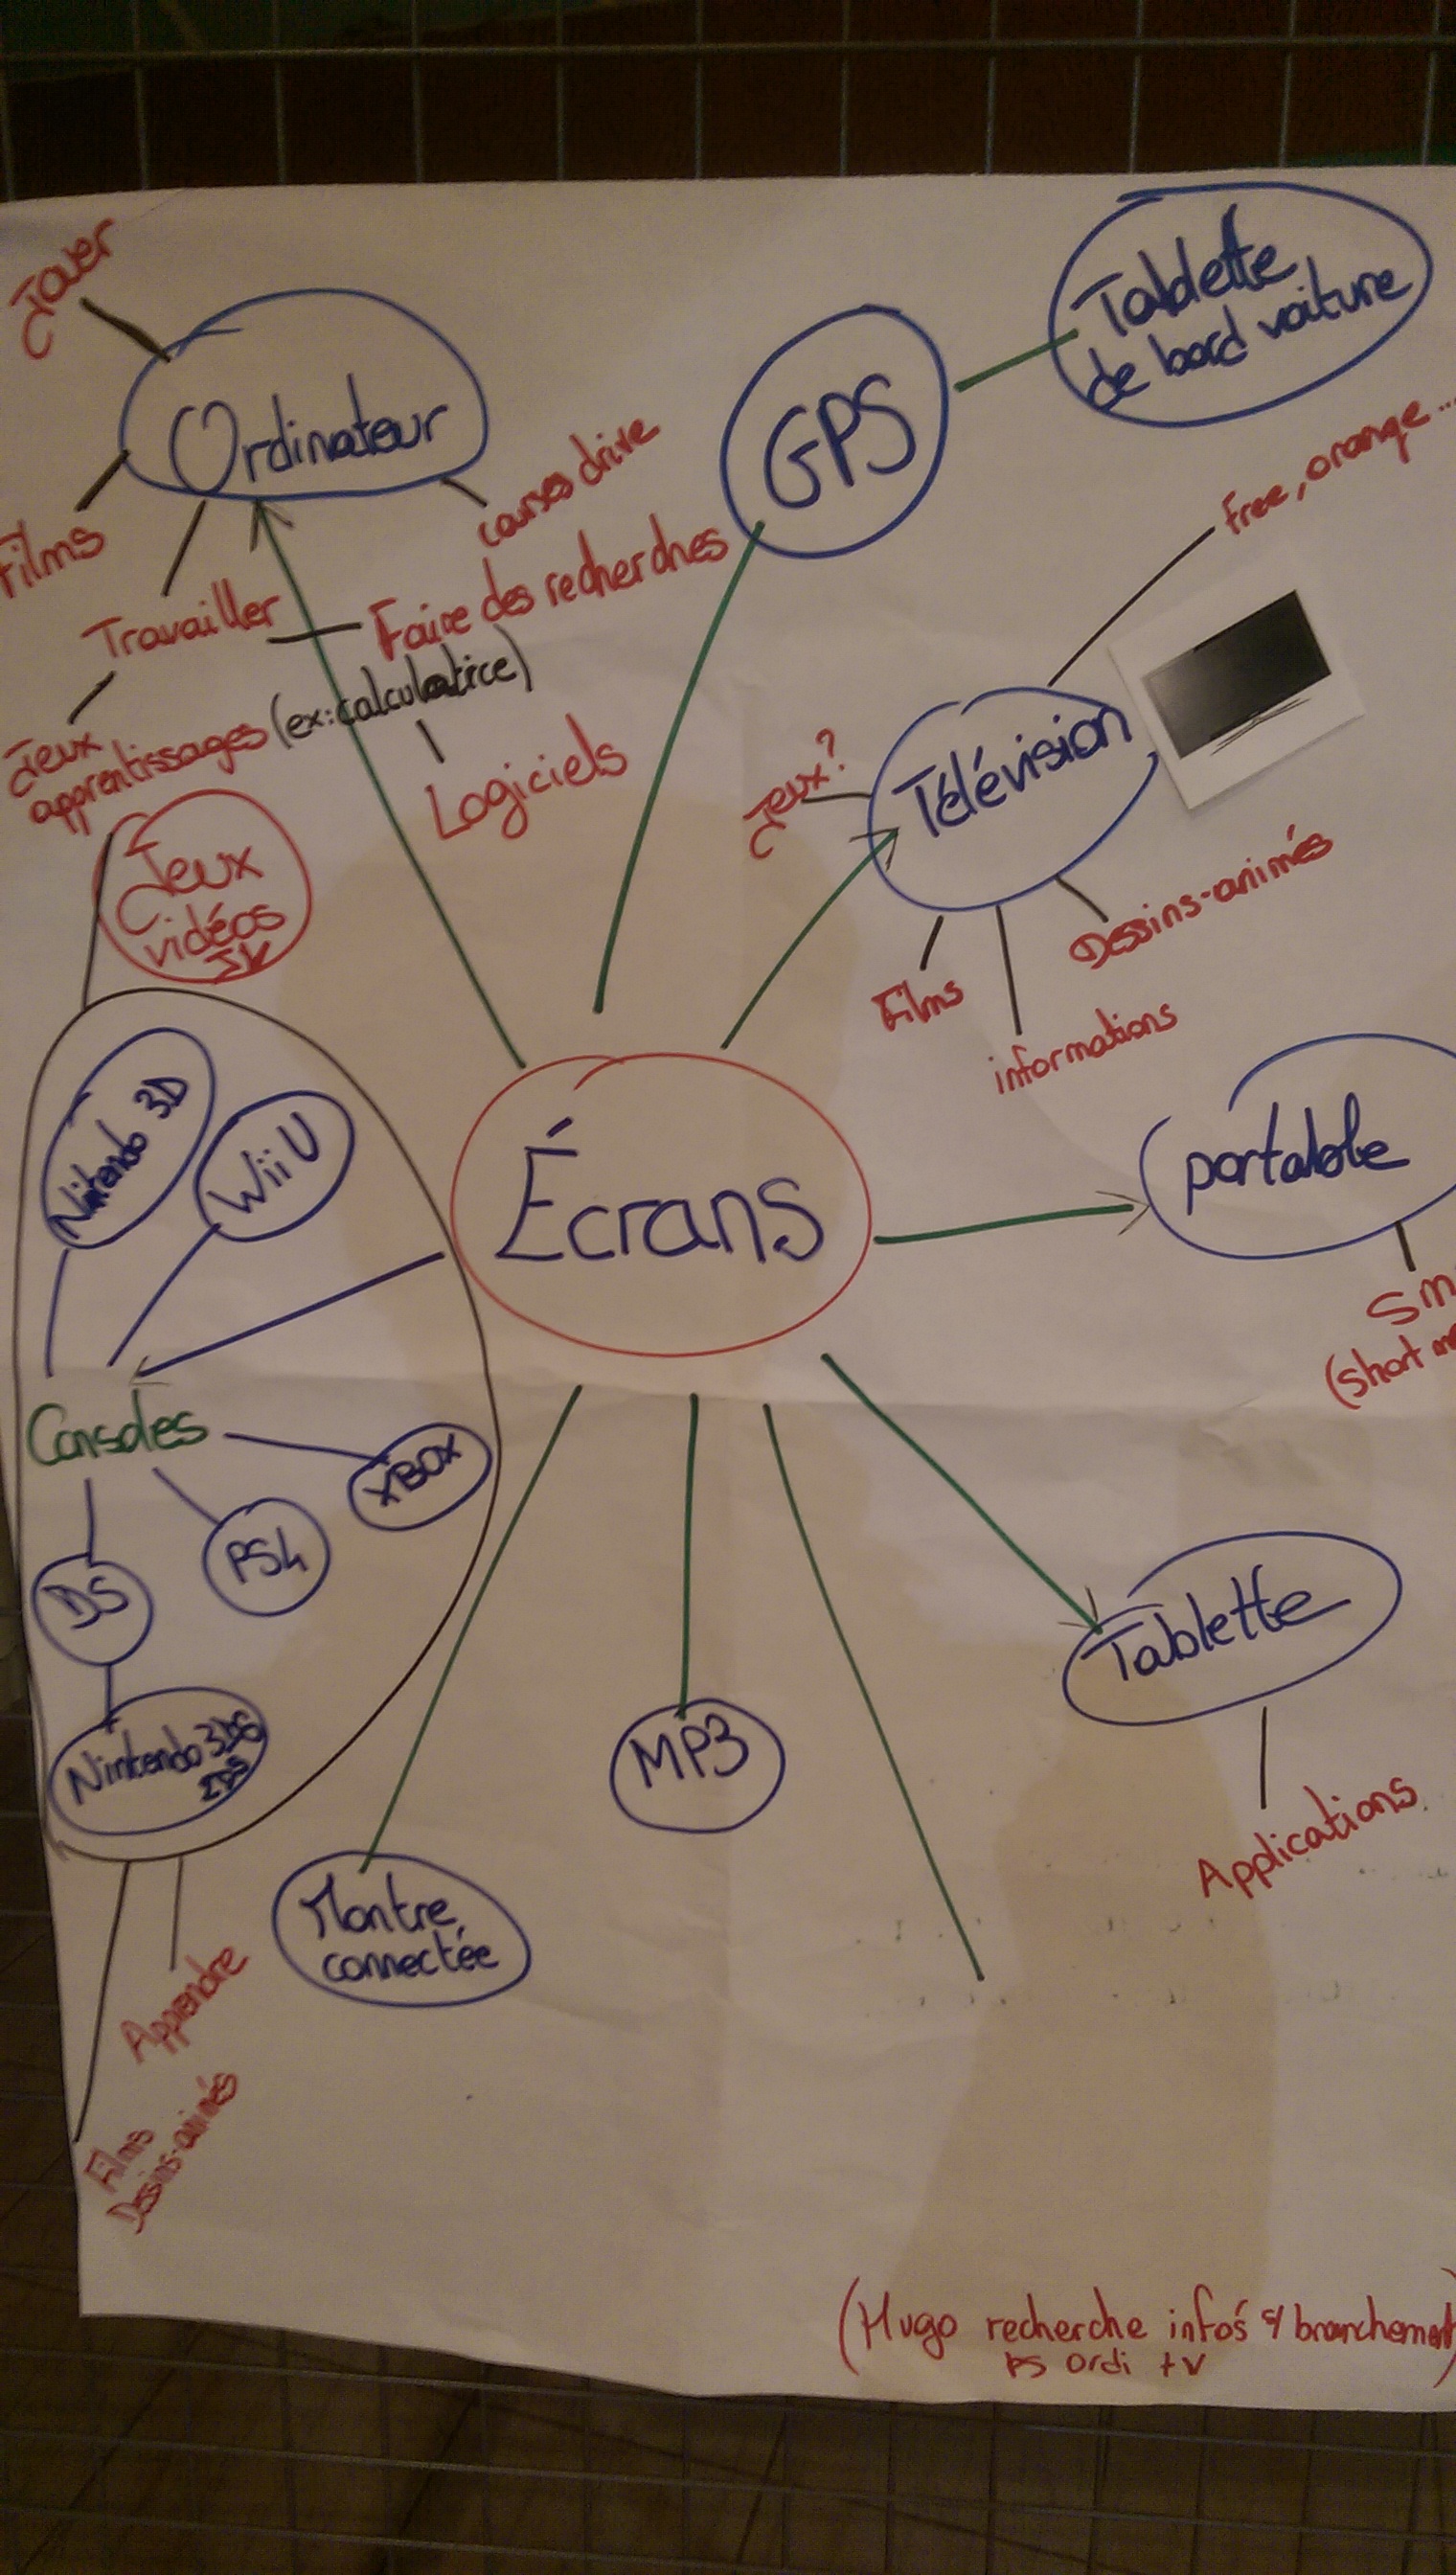 Jouer
Ordinateur
Films
courses drive
Travailler
Faire des recherches
Jeux
apprentissages (ex: calculatrice)
Logiciels
GPS
Tablette
de bord voiture
free, orange...
Télévision
Jeux?
Dessins-animés
Films
informations
Jeux
vidéos
JV
Nintendo 3D
Wii U
Écrans
portable
(short
Consoles
XBOX
PS4
DS
Nintendo 3DS
2DS
Tablette
Applications
MP3
Montre
connectée
Apprendre
Films
Dessins-animés
(Hugo recherche infos s/ branchement)
PS Ordi TV